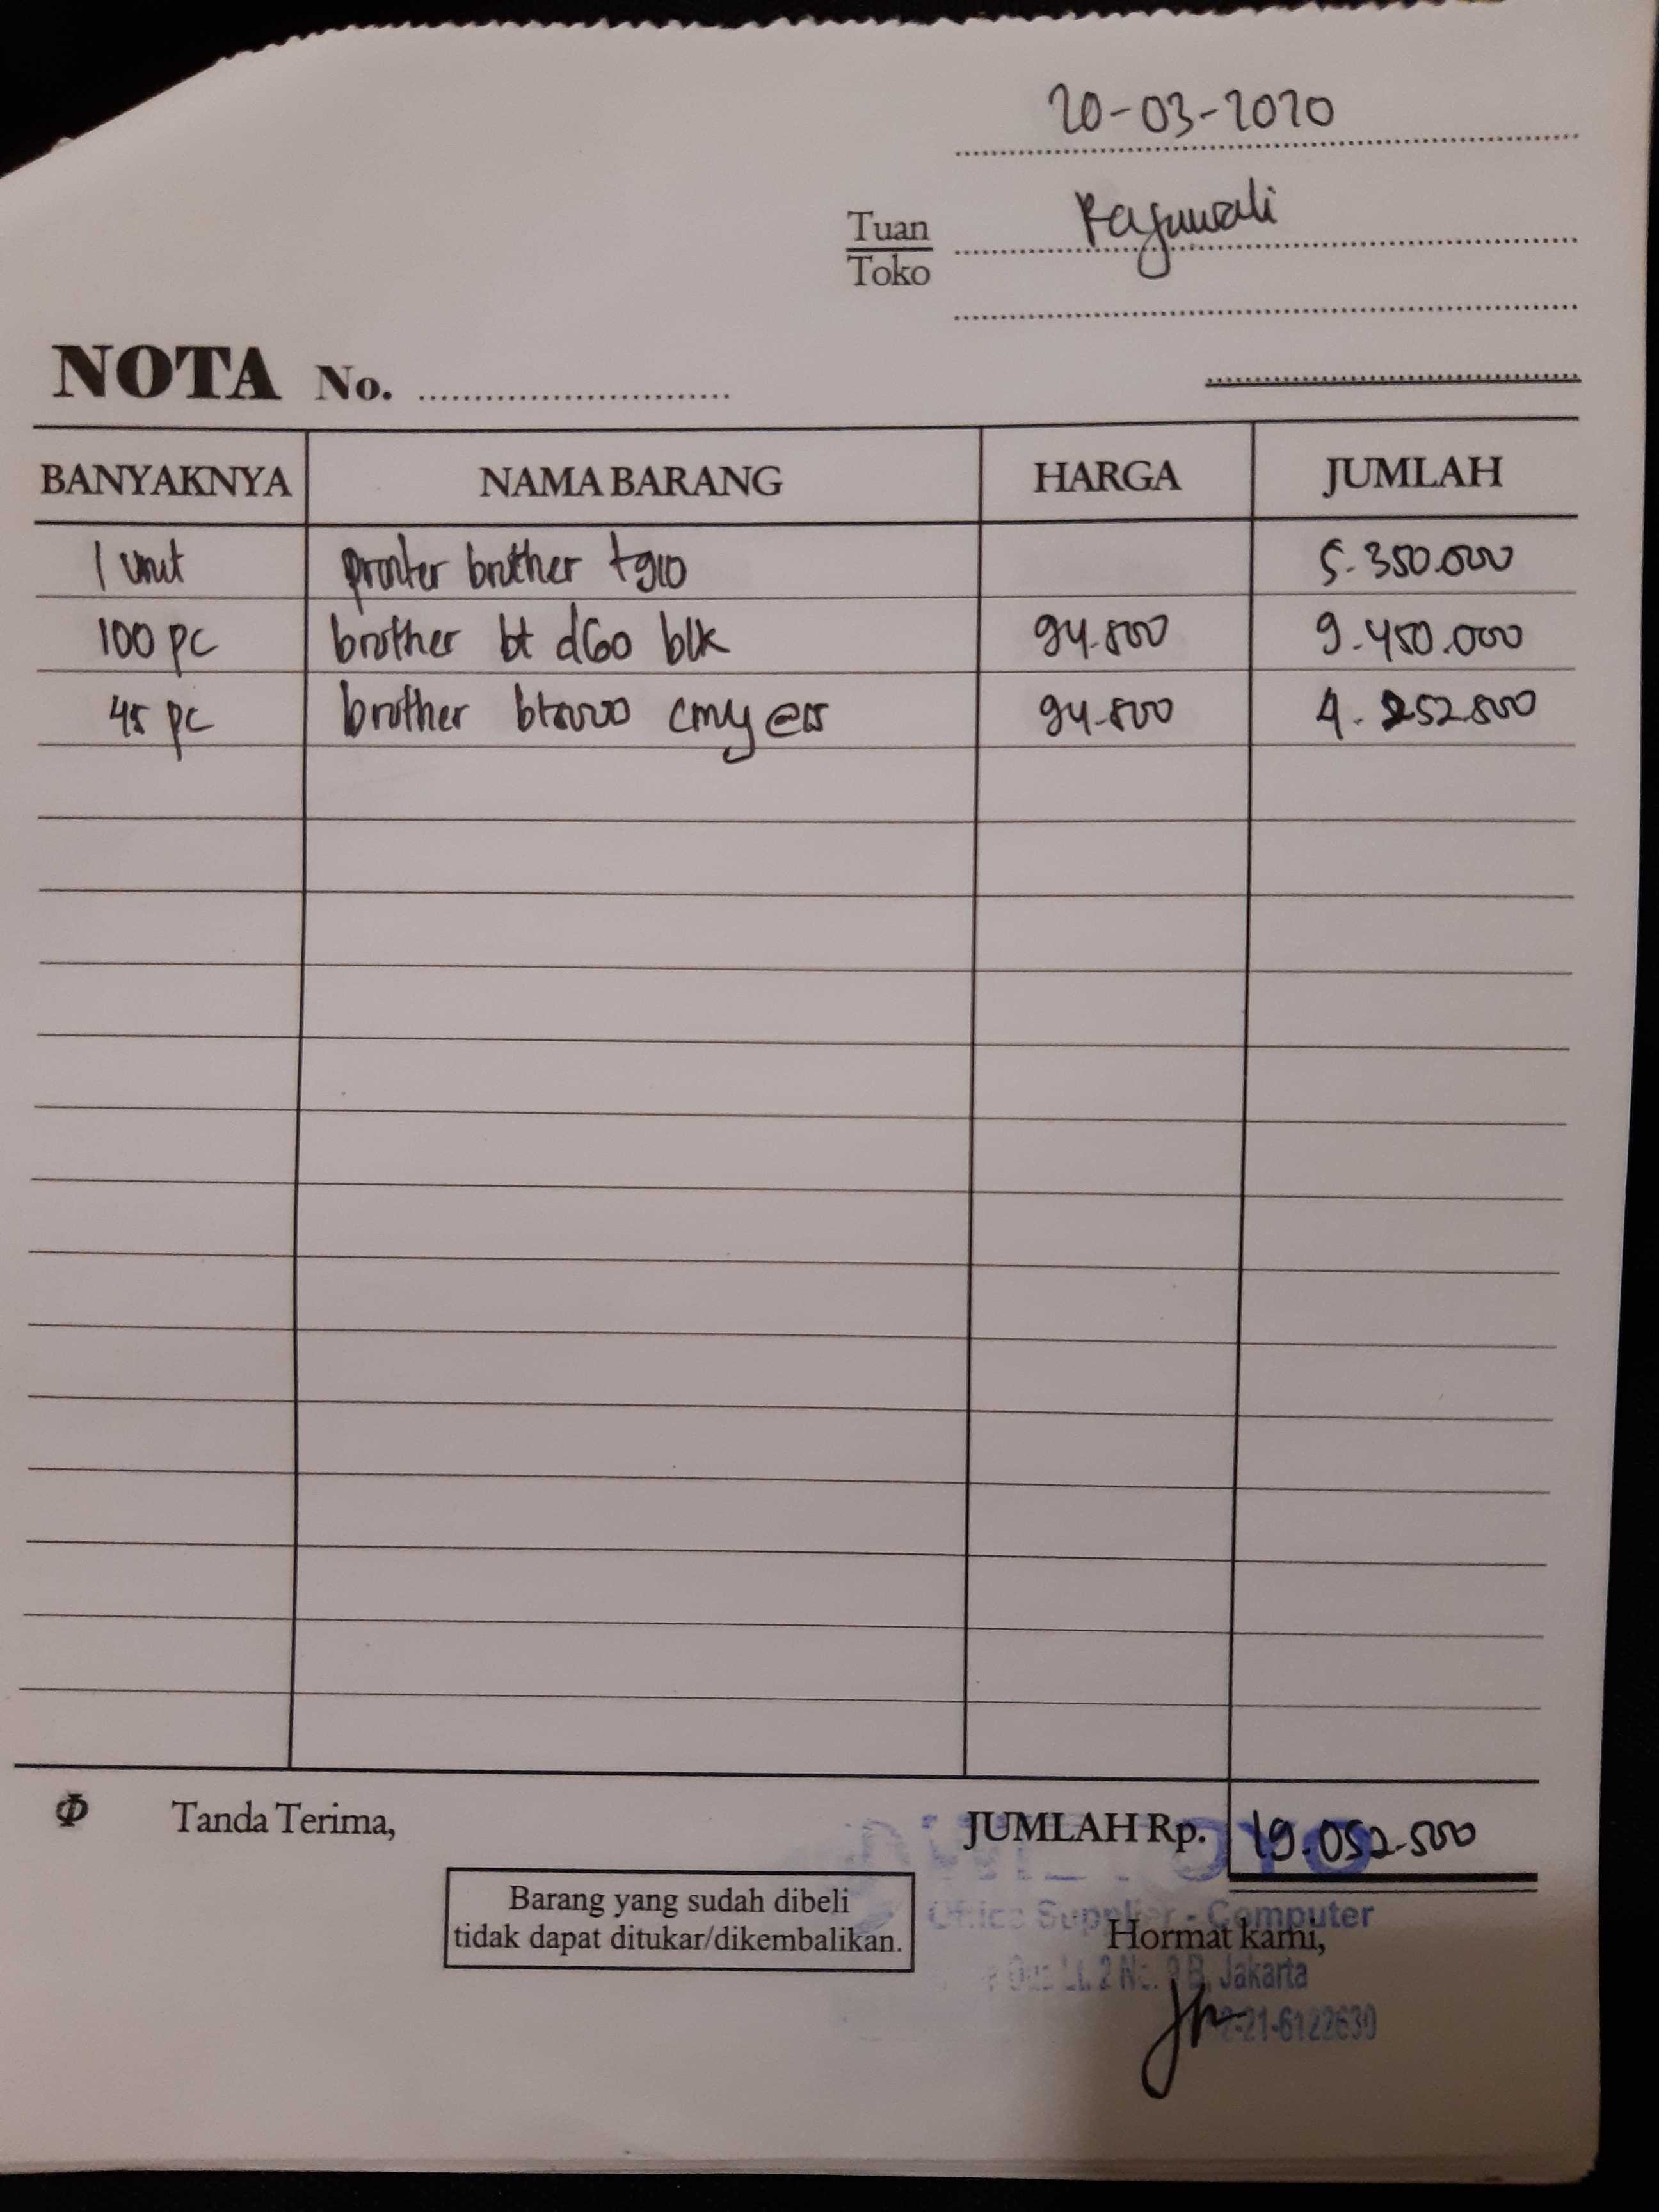 20-03-2020
Tuan
Toko
Rajawali
NOTA No.
BANYAKNYA NAMA BARANG HARGA JUMLAH
1 unit printer brother t910 5.350.000
100 pc brother bt d60 blk 94.500 9.450.000
45 pc brother bt5000 cmy @15 94.500 4.252.500
Tanda Terima, JUMLAH Rp. 19.052.500
Barang yang sudah dibeli
tidak dapat ditukar/dikembalikan.
Office Supplier - Computer
Hormat kami,
Lt. 2 No. B, Jakarta
21-6122630